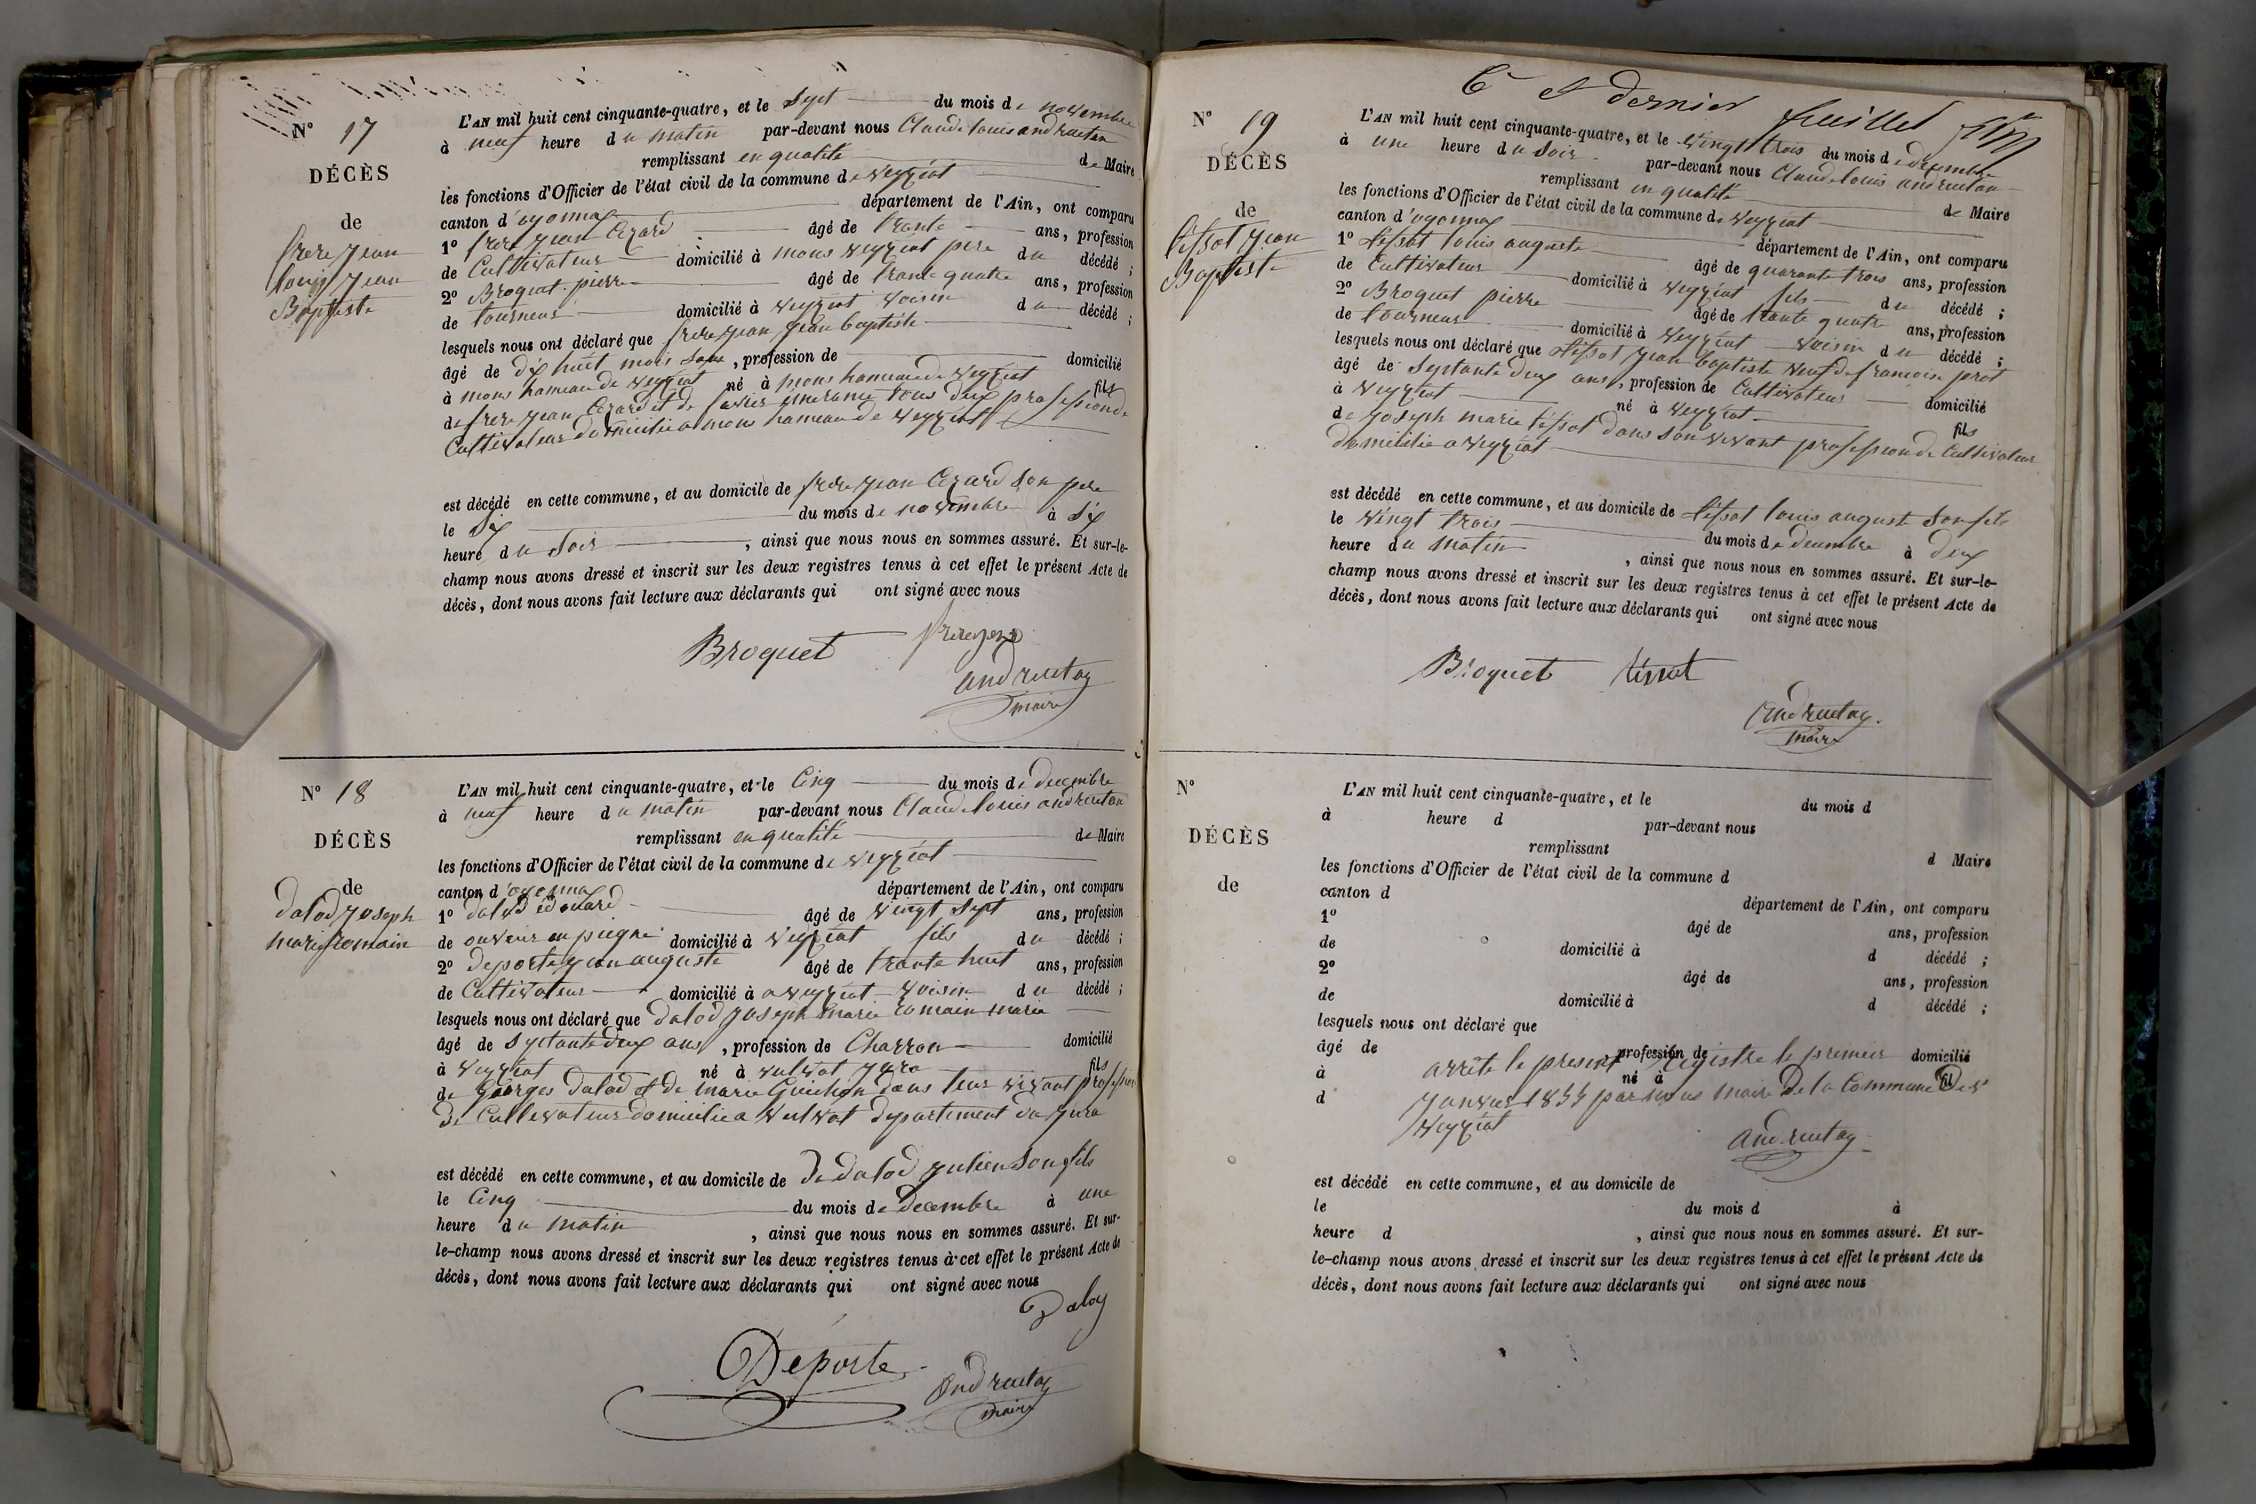 N° 17
DÉCÈS
de
frere jean
louis jean
Baptiste
L'AN mil huit cent cinquante-quatre, et le Sept du mois de novembre
à neuf heure du matin par-devant nous Claude louis andruetan
remplissant en qualité de Maire
les fonctions d'Officier de l'état civil de la commune de veyziat
canton d'oyonnax département de l'Ain, ont comparu
1° frere jean Cezard âgé de trante ans, profession
de Cultivateur domicilié à mons veyziat pere du décédé ;
2° Broquet pierre âgé de trante quatre ans, profession
de tourneur domicilié à veyziat voisin du décédé ;
lesquels nous ont déclaré que frere jean jean baptiste
âgé de dix huit mois sans, profession de domicilié
à mons hameau de veyziat né à mons hameau de veyziat fils
de frere jean Cezard et de tous deux profession de
Cultivateur domicilié a mons hameau de veyziat
est décédé en cette commune, et au domicile de frere jean Cezard son pere
le Six du mois de novembre à Six
heure du Soir , ainsi que nous nous en sommes assuré. Et sur-le-
champ nous avons dressé et inscrit sur les deux registres tenus à cet effet le présent Acte de
décès, dont nous avons fait lecture aux déclarants qui ont signé avec nous
Broquet
andruetan
maire
N° 18
DÉCÈS
de
dalod joseph
marie romain
L'AN mil huit cent cinquante-quatre, et le Cinq du mois de decembre
à neuf heure du matin par-devant nous Claude louis andruetan
remplissant en qualité de Maire
les fonctions d'Officier de l'état civil de la commune de veyziat
canton d'oyonnax département de l'Ain, ont comparu
1° dalod édouard âgé de vingt Sept ans, profession
de ouvrier en peigne domicilié à veyziat fils du décédé ;
2° deporte jean auguste âgé de trante huit ans, profession
de Cultivateur domicilié à a veyziat voisin du décédé ;
lesquels nous ont déclaré que dalod joseph marie romain marie
âgé de Septante deux ans, profession de Charron domicilié
à veyziat né à vulvoz jura fils
de Georges dalod et de marie Guichon dans leur vivant profession
de Cultivateur domicilié a vulvoz departement du jura
est décédé en cette commune, et au domicile de de dalod julien son fils
le Cinq du mois de decembre à une
heure du matin , ainsi que nous nous en sommes assuré. Et sur-
le-champ nous avons dressé et inscrit sur les deux registres tenus à cet effet le présent Acte de
décès, dont nous avons fait lecture aux déclarants qui ont signé avec nous
Deporte
andruetan
maire
6e et dernier feuillet
N° 19
DÉCÈS
de
tissot jean
Baptiste
L'AN mil huit cent cinquante-quatre, et le vingt trois du mois de decembre
à une heure du Soir par-devant nous Claude louis andruetan
remplissant en qualité de Maire
les fonctions d'Officier de l'état civil de la commune de veyziat
canton d'oyonnax département de l'Ain, ont comparu
1° tissot louis auguste âgé de quarante trois ans, profession
de Cultivateur domicilié à veyziat fils du décédé ;
2° Broquet pierre âgé de trante quatre ans, profession
de tourneur domicilié à veyziat voisin du décédé ;
lesquels nous ont déclaré que tissot jean baptiste veuf de francoise prot
âgé de Septante deux ans, profession de Cultivateur domicilié
à veyziat né à veyziat fils
de joseph marie tissot dans son vivant profession de Cultivateur
domicilié a veyziat
est décédé en cette commune, et au domicile de tissot louis auguste son fils
le vingt trois du mois de decembre à deux
heure du matin , ainsi que nous nous en sommes assuré. Et sur-le-
champ nous avons dressé et inscrit sur les deux registres tenus à cet effet le présent Acte de
décès, dont nous avons fait lecture aux déclarants qui ont signé avec nous
Broquet tissot
andruetan
maire
N°
DÉCÈS
de
L'AN mil huit cent cinquante-quatre, et le du mois d
à heure d par-devant nous
remplissant d Maire
les fonctions d'Officier de l'état civil de la commune d
canton d département de l'Ain, ont comparu
1° âgé de ans, profession
de domicilié à d décédé ;
2° âgé de ans, profession
de domicilié à d décédé ;
lesquels nous ont déclaré que
âgé de profession de domicilié
arrêté le present registre le premier
à né à fil
d janvier 1855 par nous maire de la Commune de
veyziat
andruetan
est décédé en cette commune, et au domicile de
le du mois d à
heure d , ainsi que nous nous en sommes assuré. Et sur-
le-champ nous avons dressé et inscrit sur les deux registres tenus à cet effet le présent Acte de
décès, dont nous avons fait lecture aux déclarants qui ont signé avec nous